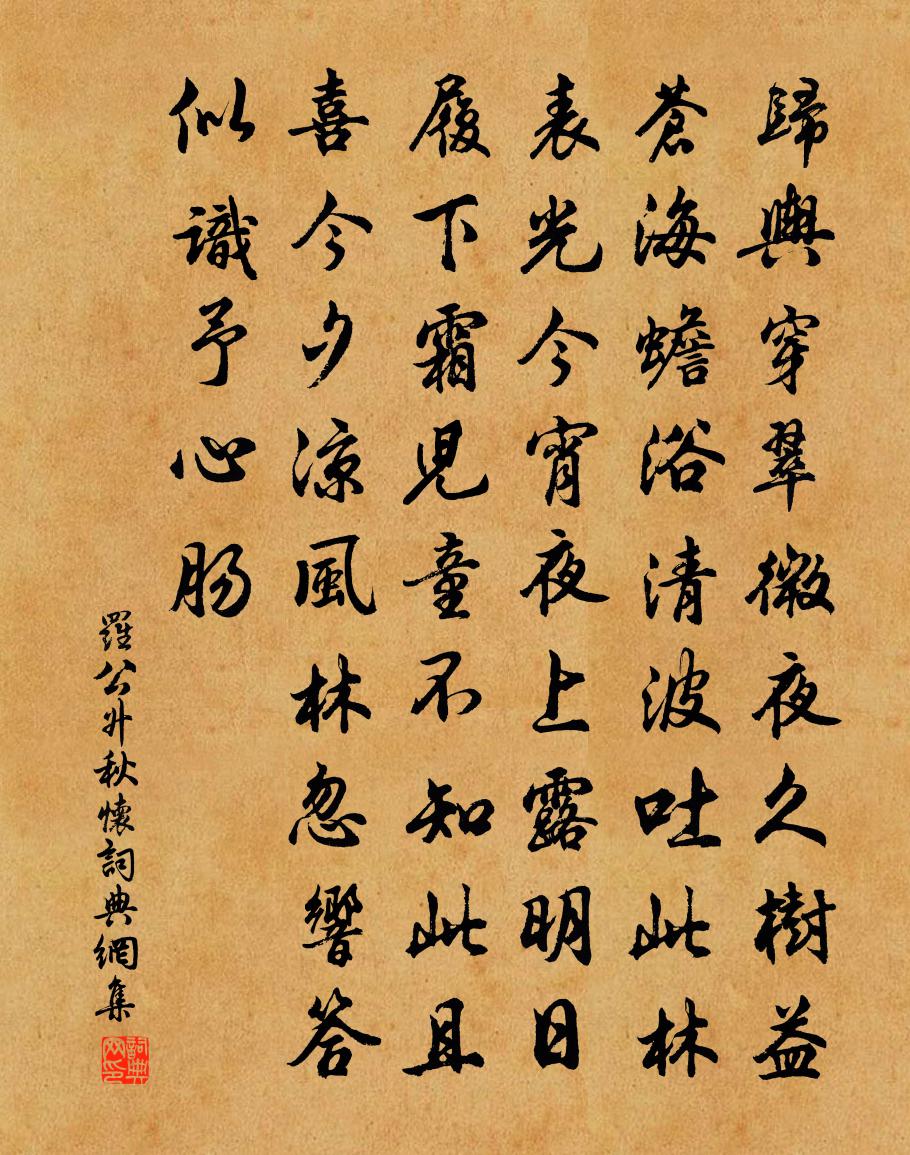 歸輿穿翠微夜久樹益
蒼海蟾浴清波吐此林
表光今宵夜上露明日
履下霜兒童不知此且
喜今夕涼風林忽響答
似識予心腸
羅公升秋懷詞典網集
詞典網印